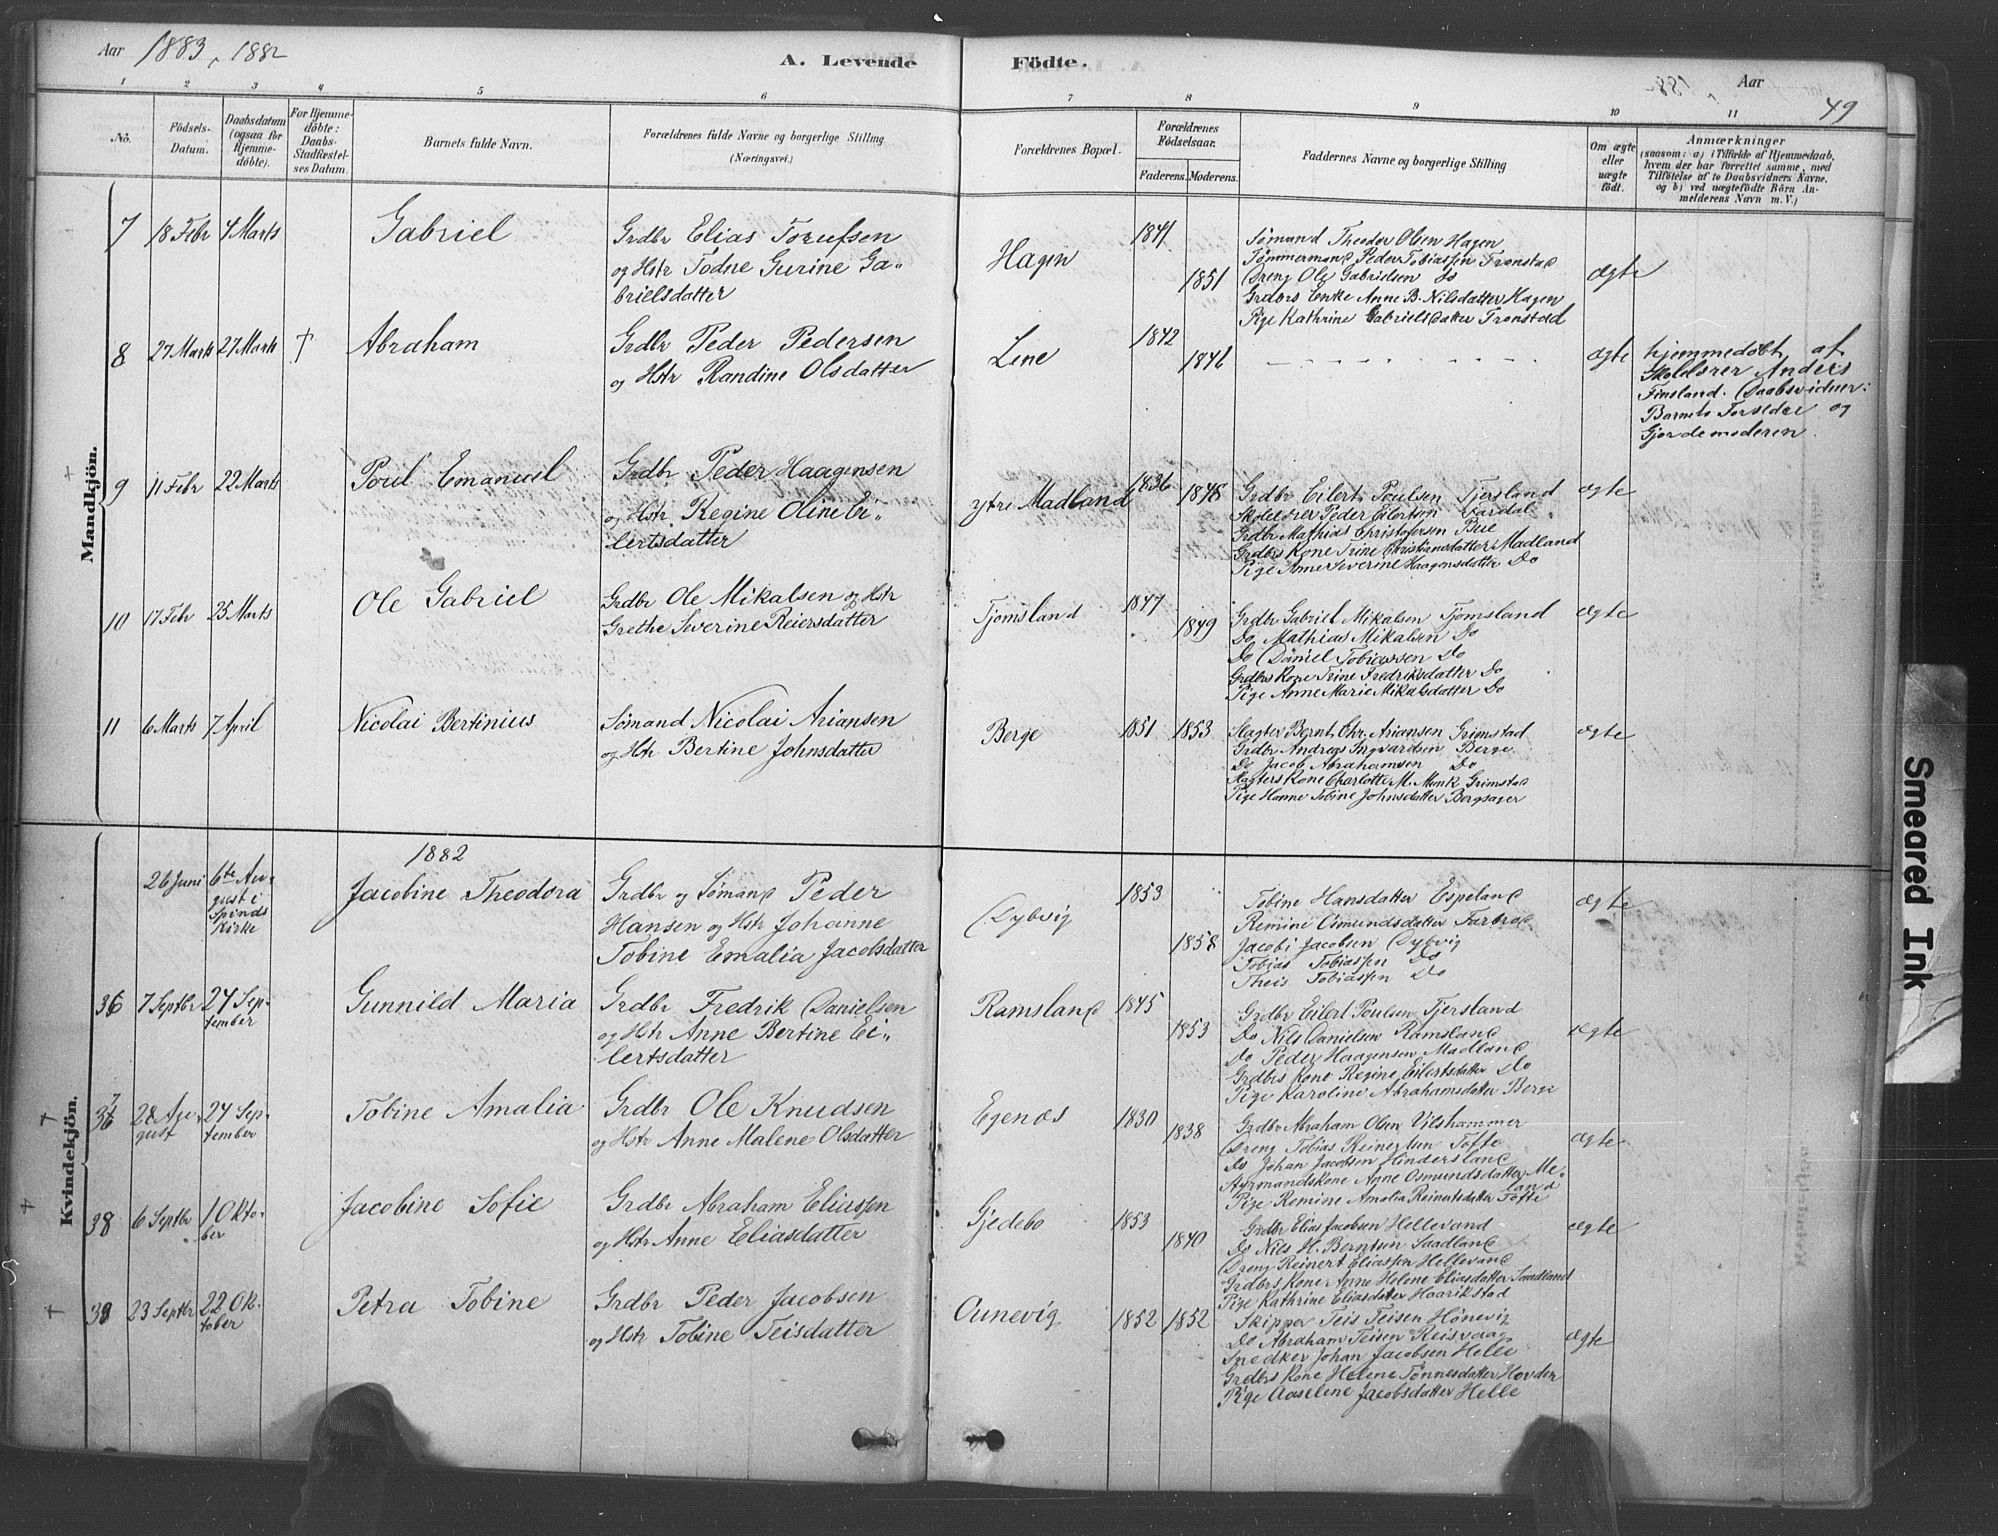 Aar 1883, 1882
A. Levende Födte.
Aar
49
1 2 3 4 5 6 7 8 9 10 11
No.
Födsels-
Datum.
Daabsdatum
(ogsaa for
Hjemme-
döbte).
For Hjemme-
döbte:
Daabs-
Stadfæstel-
ses Datum.
Barnets fulde Navn.
Forældrenes fulde Navne og borgerlige Stilling
(Næringsvei.)
Forældrenes Bopæl.
Forældrenes
Födselsaar.
Faderens. Moderens.
Faddernes Navne og borgerlige Stilling
Om ægte
eller
uægte
födt.
Anmærkninger
(saasom: a) i Tilfælde af Hjemmedaab,
hvem der har forrettet samme, med
Tilföielse af to Daabsvidners Navne,
og b) ved uægtefödte Börn An-
melderens Navn m. V.)
Mandkjön.
7 18 Febr 4 Marts Gabriel
Grdbr Elias
og Hstr Todne Gurine Ga-
brielsdatter
Hagen
1841
1851
Sømand Theodor Olsen Hagen
Tømmermand Peder Tobiassen Tronstad
Dreng Ole Gabrielsen Do
Grdbrs Enke Anne B. Nilsdatter Hagen
Pige Kathrine Gabrielsdatter Tronstad
ægte
8 27 Marts 27 Marts † Abraham
Grdbr Peder Pedersen
og Hstr Randine Olsdatter
Lene
1842
1846
ægte
hjemmedøbt af
Skolelærer Anders
Finsland. Daabsvidner:
Barnets Forældre og
Gjordemoderen.
9 11 Febr 22 Marts Poul Emanuel
Grdbr Peder Haagensen
og Hstr Regine Oline Ei-
lertsdatter
ytre Madland
1836
1848
Grdbr Eilert Poulsen Tjersland
Skolelærer Peder Eilertsen Fardal
Grdbr Mathias Christofersen Bue
Grdbrs Kone Trine Christiansdatter Madland
Pige Anne Severine Haagensdatter Do
ægte
10 17 Febr 25 Marts Ole Gabriel
Grdbr Ole Mikalsen og Hstr
Grethe Severine Reiersdatter
Tjomsland
1847
1849
Grdbr Gabriel Mikalsen Tjomsland
Do Mathias Mikalsen Do
Do Daniel Tobiassen Do
Grdbrs Kone Trine Fredriksdatter Do
Pige Anne Marie Mikalsdatter Do
ægte
11 6 Marts 7 April Nicolai Bertinius
Sømand Nicolai Ariansen
og Hstr Bertine Johnsdatter
Berge
1851 1853
Slagter Bernt Chr. Ariansen Grimstad
Grdbr Andreas Ingvardsen Berge
Do Jacob Abrahamsen Do
Slagters Kone Charlotte M. Monk Grimstad
Pige Hanne Tobine Johnsdatter Bergsager
ægte
Kvindekjön.
1882
26 Juni 6te Au-
gust i
Spinds
Kirke
Jacobine Theodora
Grdbr og Sømand Peder
Hansen og Hstr Johanne
Tobine Emalia Jacobsdatter
Dybvig
1853
1858
Tobine Hansdatter Espeland
Remine Osmundsdatter Farbrod
Jacobi Jacobsen Dybvig
Tobias Tobiassen Do
Theis Tobiassen Do
ægte
36 7 Septbr 24 Sep-
tember
Gunnild Maria
Grdbr Fredrik Danielsen
og Hstr Anne Bertine Ei-
lertsdatter
Ramsland
1845
1853
Grdbr Eilert Poulsen Tjersland
Do Nils Danielsen Ramsland
Do Peder Haagensen Madland
Grdbrs Kone Regine Eilertsdatter Do
Pige Karoline Abrahamsdatter Berge
ægte
37 28 Au-
gust
24 Sep-
tember
Tobine Amalia
Grdbr Ole Knudsen
og Hstr Anne Malene Olsdatter
Egenæs
1830
1838
Grdbr Abraham Olsen Vilshammer
Dreng Tobias Reinertsen Tofte
Do Johan Jacobsen Hindersland
Anne Osmundsdatter Me-
land
Pige Remine Amalia Reinertsdatter Tofte
ægte
38 6 Septbr 1 Okto-
ber
Jacobine Sofie
Grdbr Abraham Eliassen
og Hstr Anne Eliasdatter
Gjedebo
1853
1840
Grdbr Elias Jacobsen Hellevand
Do Nils H. Berntsen Saadland
Dreng Reinert Eliassen Hellevand
Grdbrs Kone Anne Helene Eliasdatter Saadland
Pige Kathrine Eliasdatter Haarikstad
ægte
39 23 Septbr 22 Ok-
tober
Petra Tobine
Grdbr Peder Jacobsen
og Hstr Tobine Teisdatter
Ounevig
1852 1852
Skipper Teis Teisen Hönevig
Do Abraham Teisen Reisvaag
Snedker Johan Jacobsen Helle
Grdbrs Kone Helene Tønnesdatter Hovder
Pige Aaselene Jacobsdatter Helle
ægte
Smeared Ink